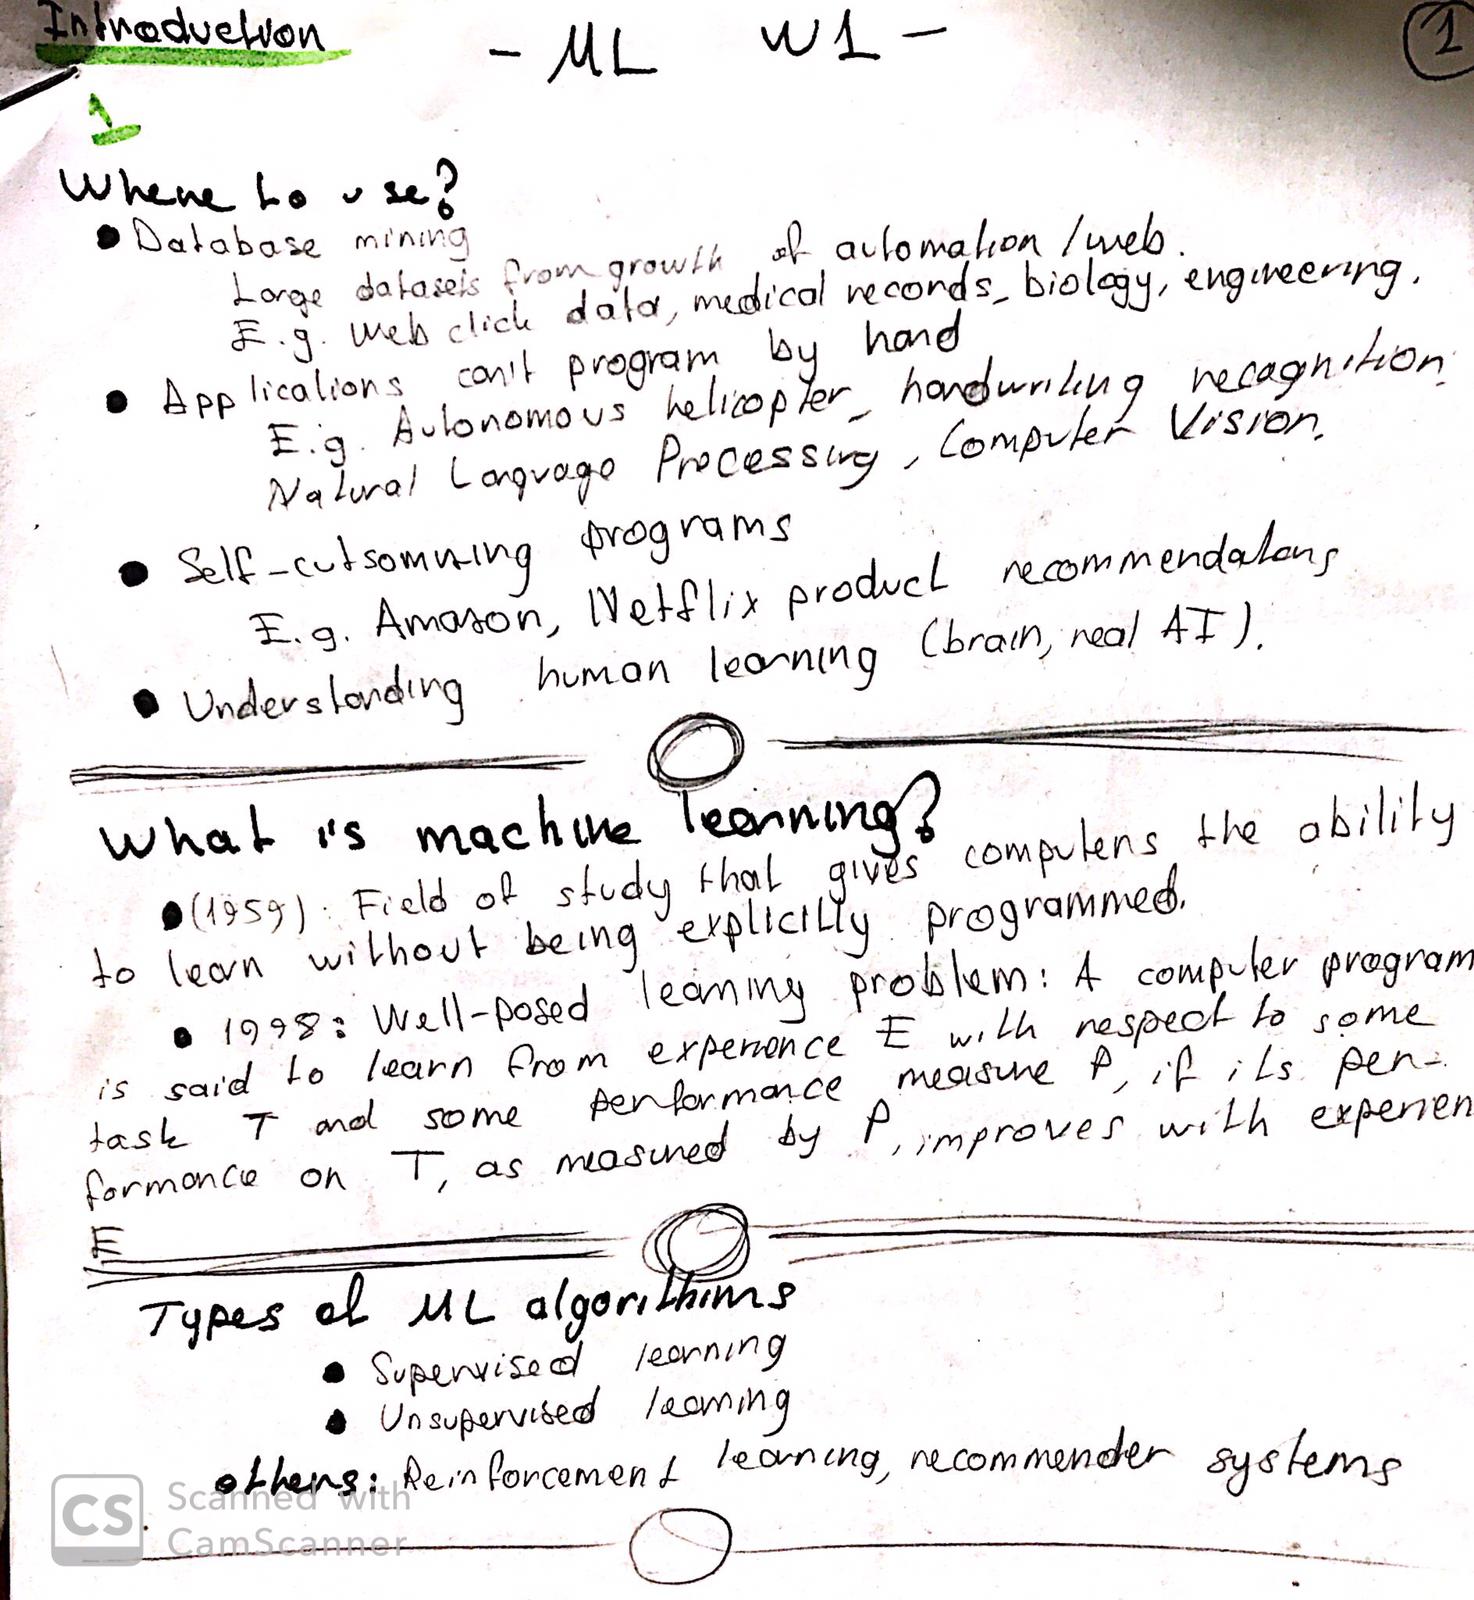 Introduction
- ML W1 -
1
1
Where to use?
• Database mining
Large datasets from growth of automation / web.
E.g. Web click data, medical records, biology, engineering.
• Applications can't program by hand
E.g. Autonomous helicopter, handwriting recognition.
Natural Language Processing, Computer Vision.
• Self-cutsomizing programs
E.g. Amazon, Netflix product recommendations
• Understanding human learning (brain, real AI).
What is machine learning?
• (1959): Field of study that gives computers the ability
to learn without being explicitly programmed.
• 1998: Well-posed learning problem: A computer program
is said to learn from experience E with respect to some
task T and some performance measure P, if its per-
formance on T, as measured by P, improves with experien
E
Types of ML algorithims
• Supervised learning
• Unsupervised learning
others: Reinforcement learning, recommender systems
CS Scanned with
CamScanner